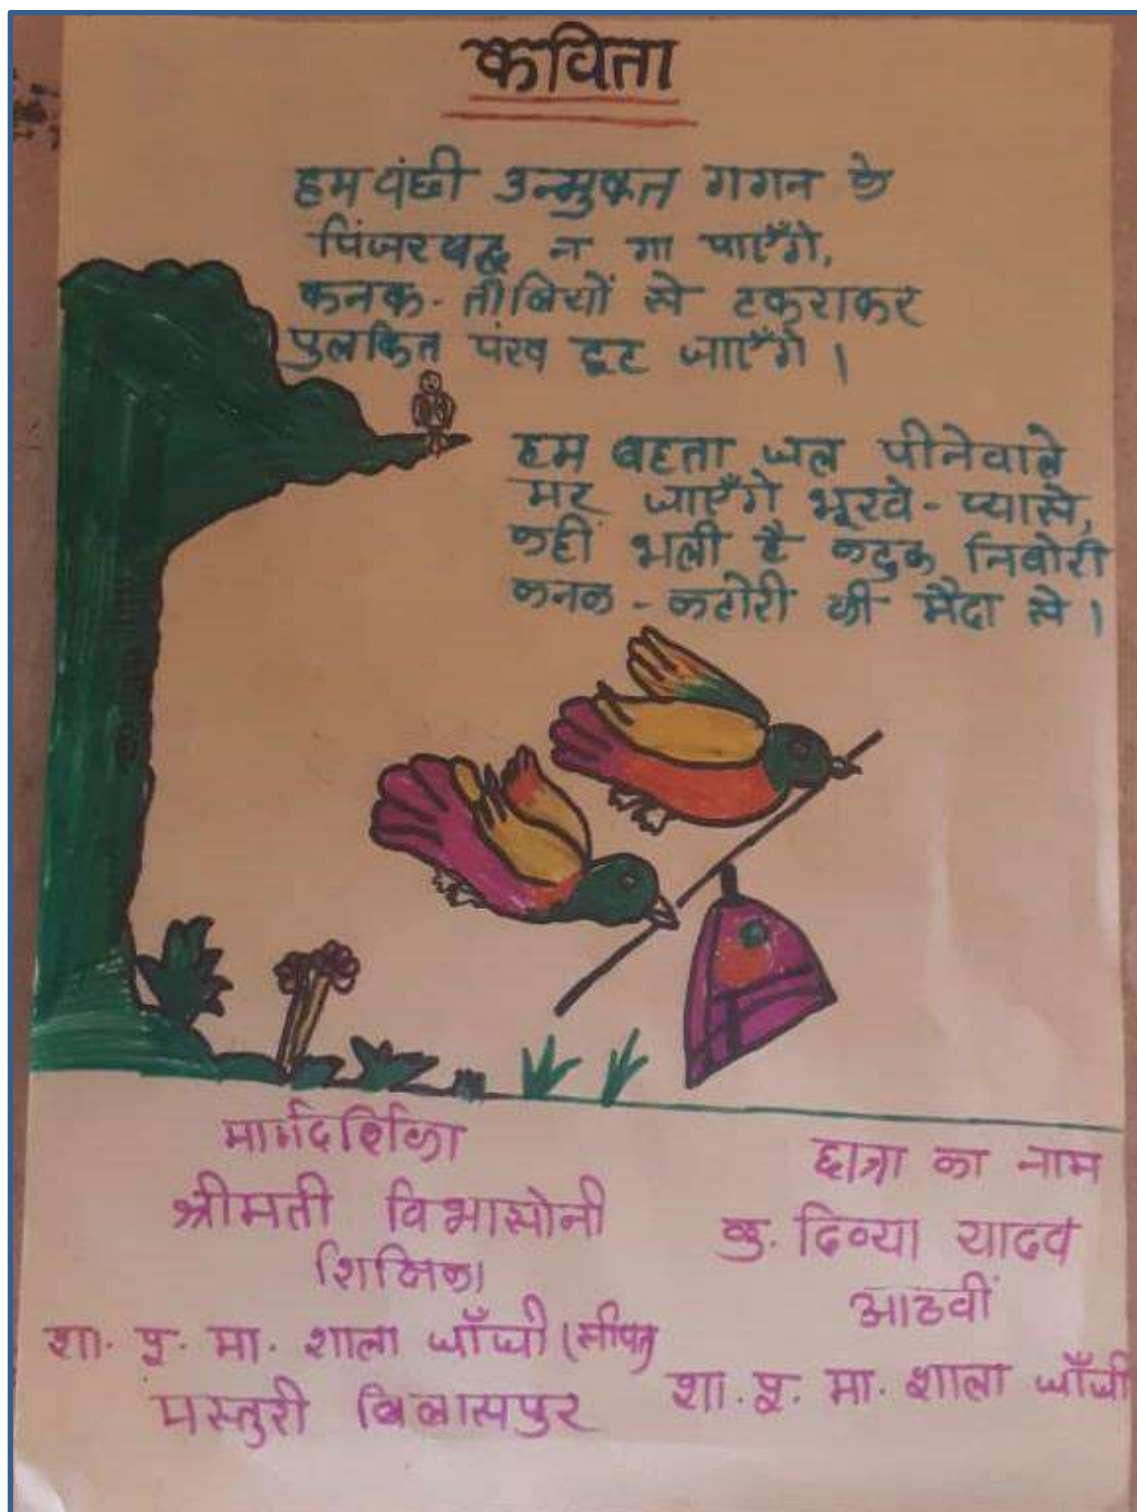 कविता
हम पंछी उन्मुक्त गगन के
पिंजरबद्ध न गा पाएँगे,
कनक-तीलियों से टकराकर
पुलकित पंख टूट जाएँगे।
हम बहता जल पीनेवाले
मर जाएँगे भूखे-प्यासे,
कहीं भली है कटुक निबोरी
कनक-कटोरी की मैदा से।
मार्गदर्शिका
श्रीमती विभासोनी
शिक्षिका
शा. पू. मा. शाला धाँधी (सीपत)
मस्तुरी बिलासपुर
छात्रा का नाम
कु. दिव्या यादव
आठवीं
शा. पू. मा. शाला धाँधी